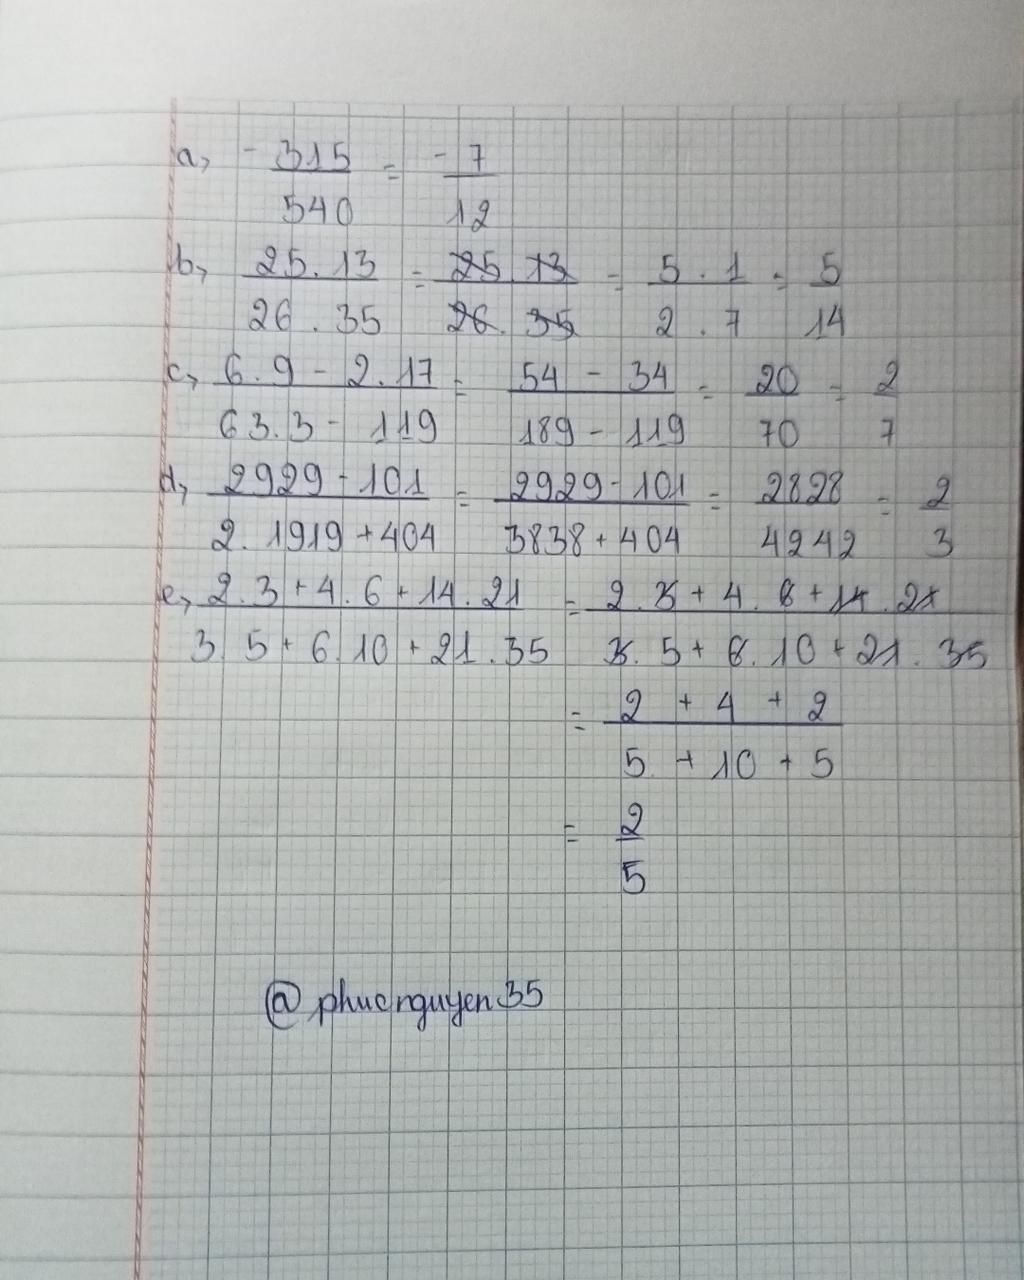 a, -315/540 = -7/12
b, 25.13/26.35 = 25.13/26.35 = 5.1/2.7 = 5/14
c, 6.9 - 2.17/63.3 - 119 = 54 - 34/189 - 119 = 20/70 = 2/7
d, 2929 - 101/2.1919 + 404 = 2929 - 101/3838 + 404 = 2828/4242 = 2/3
e, 2.3 + 4.6 + 14.21/3.5 + 6.10 + 21.35 = 2.3 + 4.6 + 14.21/3.5 + 6.10 + 21.35
= 2 + 4 + 2/5 + 10 + 5
= 2/5
@phucnguyen35